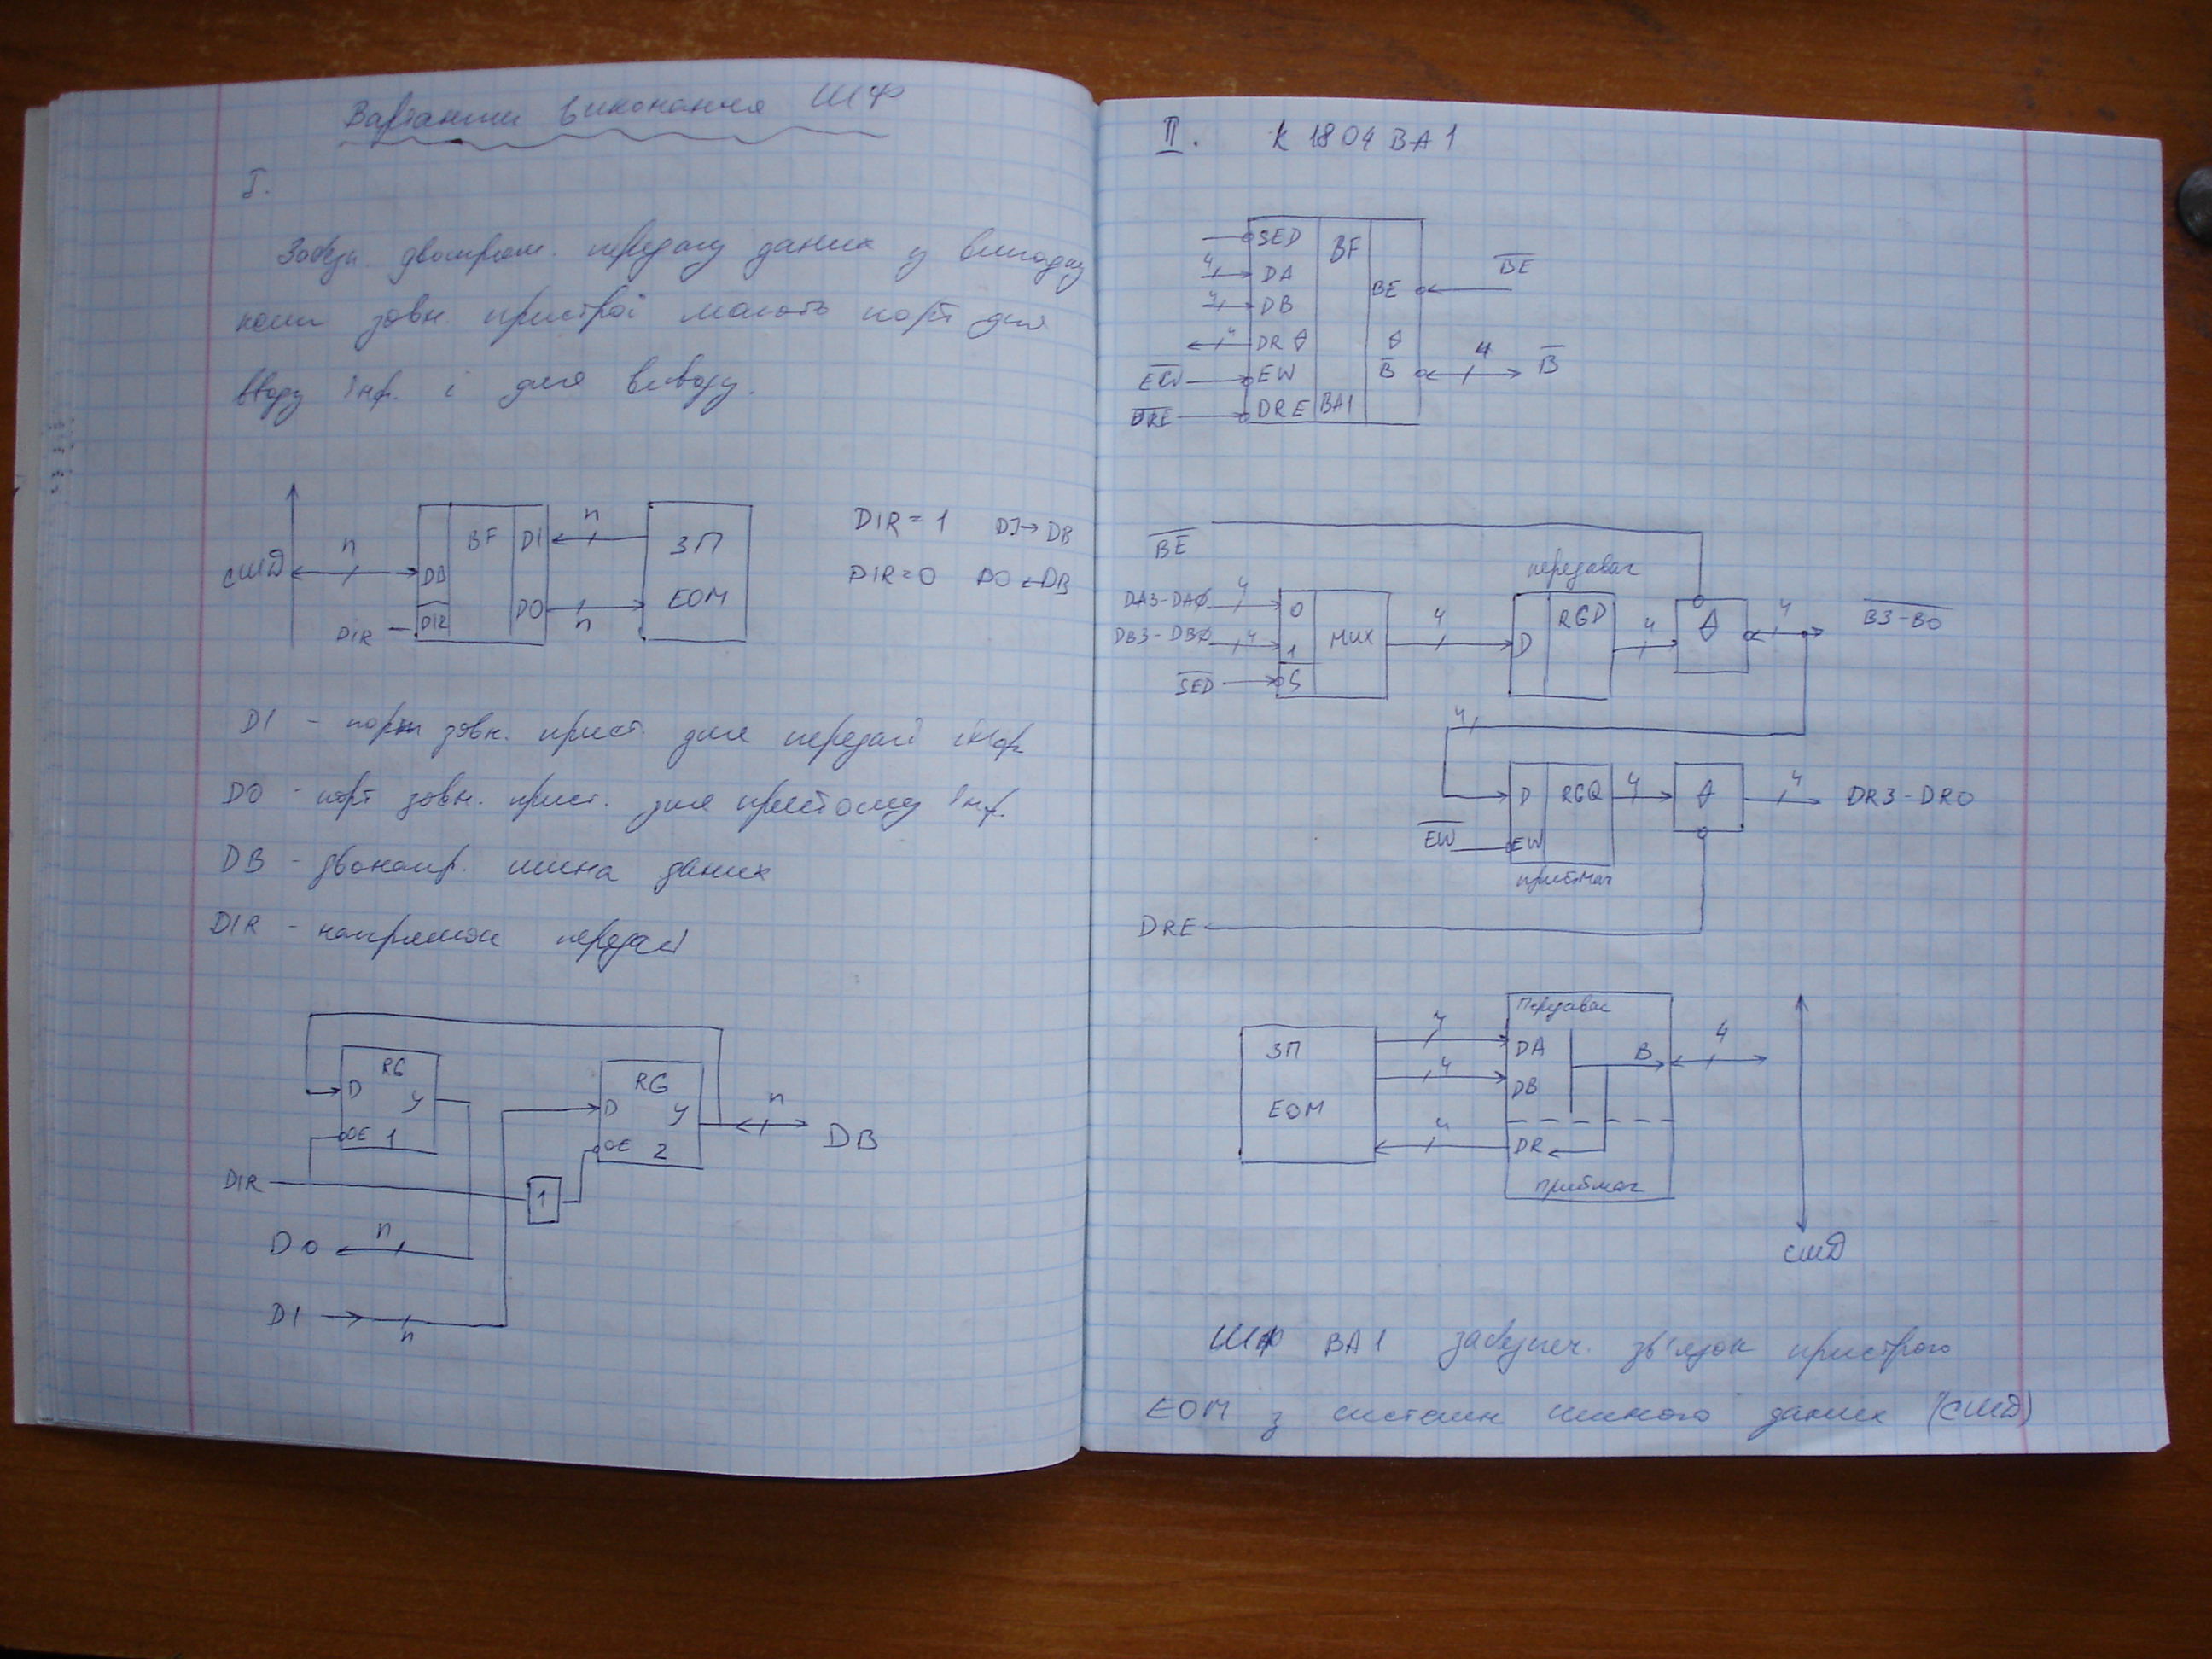 Варіанти виконання ШФ
I.
Забезп. двонапрям. передачу даних у випадку
коли зовн. пристрої мають порт для
вводу інф. і для виводу.
СШД
n
DB
DIR
BF
DI
DO
n
n
ЗП
ЕОМ
DIR
DIR = 1 DI→DB
DIR = 0 DO←DB
DI - порт зовн. прист. для передачі інф.
DO - порт зовн. прист. для прийому інф.
DB - двонапр. шина даних
DIR - напрямок передачі
RG
D
Y
OE 1
RG
D
Y
OE 2
n
DB
DIR
1
DO
n
DI
n
II. К 1804 ВА 1
SED
BF
4
DA
4
DB
BE
B̅E̅
4
DR
4
B̅
B̅
E̅W̅
EW
D̅R̅E̅
DRE
BA1
B̅E̅
передавач
DA3-DA0
4
0
DB3-DB0
4
1
MUX
4
D
RGD
4
4
B̅3̅-̅B̅0̅
S̅E̅D̅
S
4
D
RGQ
4
4
DR3-DR0
E̅W̅
EW
приймач
DRE
Передавач
ЗП
4
DA
B
4
4
DB
ЕОМ
4
DR
приймач
СШД
ШФ ВА1 забезпеч. зв'язок пристрою
ЕОМ з системн шиною даних (СШД)